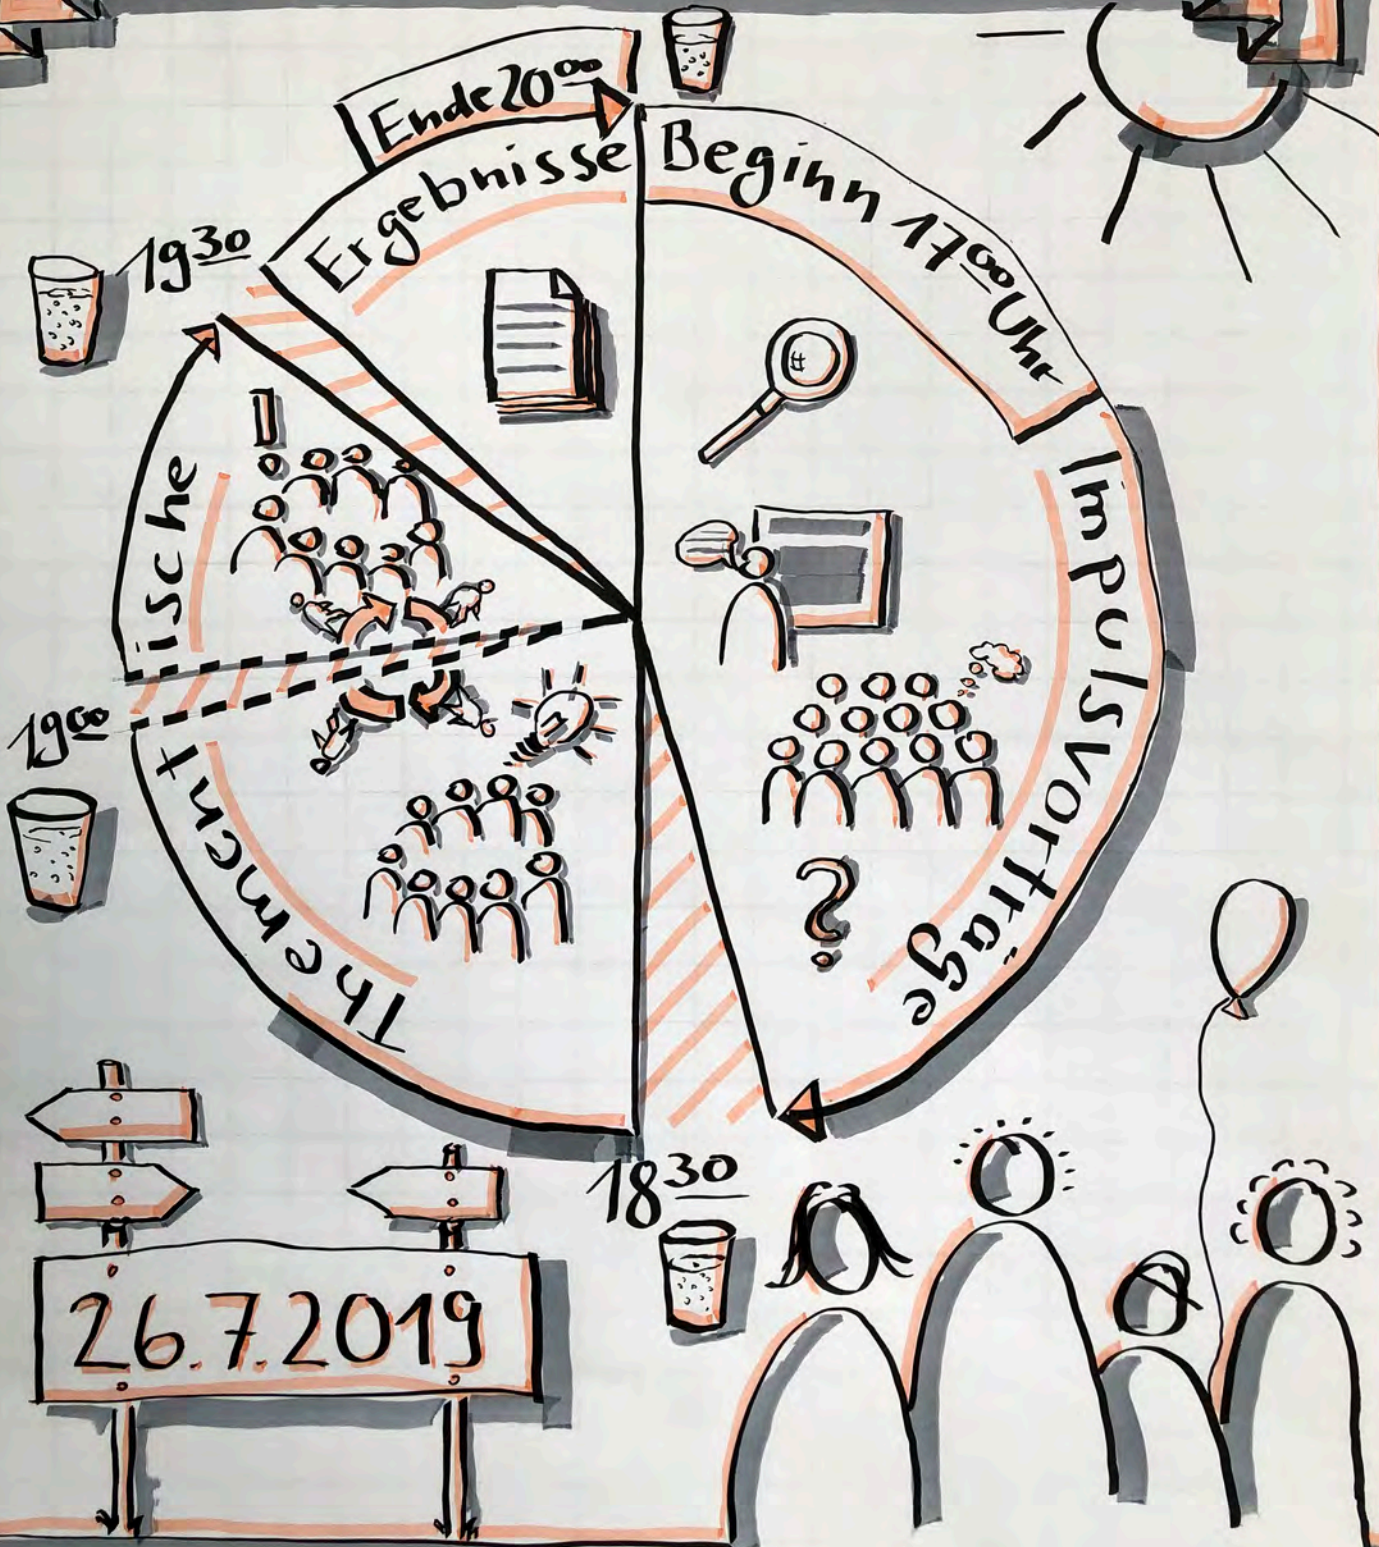 Ende 20⁰⁰
Ergebnisse
Beginn 17⁰⁰ Uhr
Impulsvorträge
18³⁰
Thement
ische
19⁰⁰
19³⁰
26.7.2019